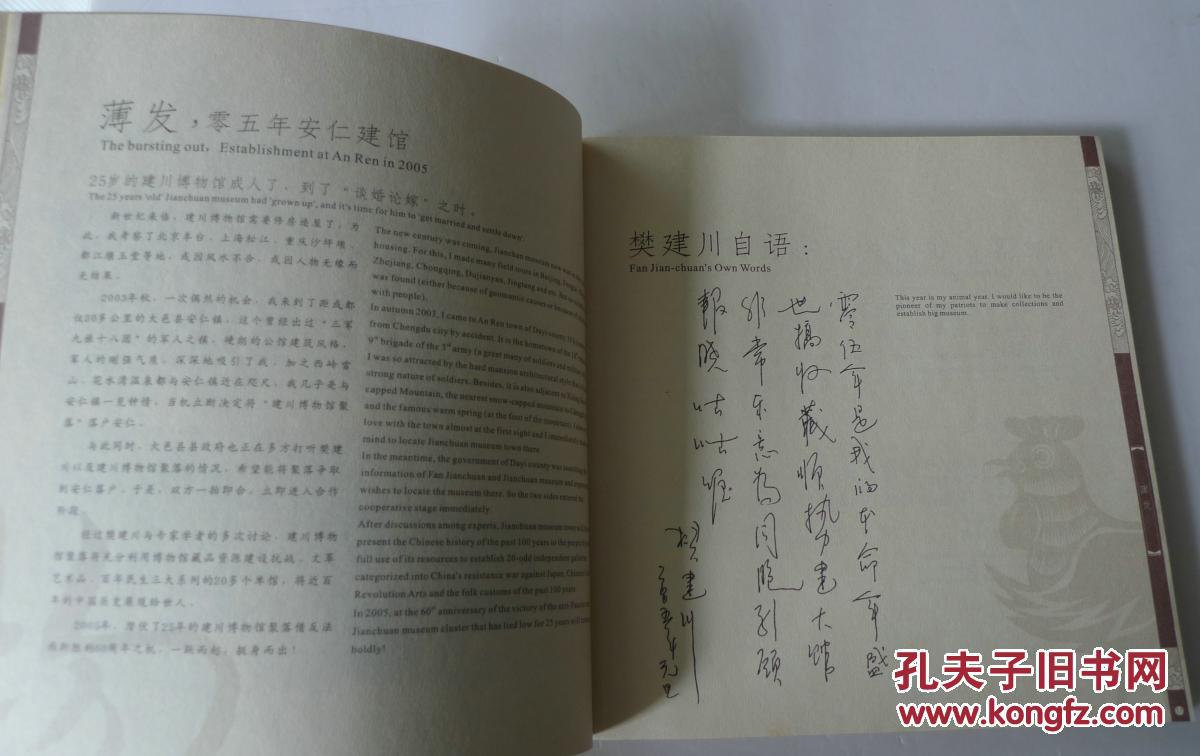 薄发，零五年安仁建馆
The bursting out, Establishment at An Ren in 2005
25岁的建川博物馆成人了，到了“谈婚论嫁”之时。
The 25 years 'old' Jianchuan museum had 'grown up', and it's time for him to 'get married and settle down'.
新世纪来临，建川博物馆需要修房造屋了，为
此，我考察了北京丰台、上海松江、重庆沙坪坝、
都江堰玉堂等地，或因风水不合，或因人物无缘而
无结果。
2003年秋，一次偶然的机会，我来到了距成都
仅30多公里的大邑县安仁镇，这个曾经出过“三军
九旅十八团”的军人之镇，硬朗的公馆建筑风格，
军人的刚强气质，深深地吸引了我，加之西岭雪
山、花水湾温泉都与安仁镇近在咫尺，我几乎是与
安仁镇一见钟情，当机立断决定将“建川博物馆聚
落”落户安仁。
与此同时，大邑县县政府也正在多方打听樊建
川以及建川博物馆聚落的情况，希望能将聚落争取
到安仁落户。于是，双方一拍即合，立即进入合作
阶段。
经过樊建川与专家学者的多次讨论，建川博物
馆聚落将充分利用博物馆藏品资源建设抗战、文革
艺术品、百年民生三大系列的20多个单馆，将近百
年的中国历史展现给世人。
2005年，潜伏了25年的建川博物馆聚落借反法
西斯胜利60周年之机，一跃而起，挺身而出！
The new century was coming, Jianchuan museum now was in
housing. For this, I made many field tours in Beijing,
Zhejiang, Chongqing, Dujianyan, Jingtang and etc. But no
was found (either because of geomantic causes or because of
with people).
In autumn 2003, I came to An Ren town of Dayi county,
from Chengdu city by accident. It is the hometown of the 18th
9th brigade of the 3rd army (a great many of soldiers and
I was so attracted by the hard mansion architectural style
strong nature of soldiers. Besides, it is also adjacent to Xiling
capped Mountain, the nearest snow-capped mountain to
and the famous warm spring (at the foot of the mountain).
love with the town almost at the first sight and I immediately
mind to locate Jianchuan museum town there.
In the meantime, the government of Dayi county was searching
information of Fan Jianchuan and Jianchuan Museum and
wishes to locate the museum there. So the two sides entered the
cooperative stage immediately.
After discussions among experts, Jianchuan museum town
present the Chinese history of the past 100 years to the people
full use of its resources to establish 20-odd independent
categorized into China's resistance war against Japan, Chinese
Revolution Arts and the folk customs of the past 100 years.
In 2005, at the 60th anniversary of the victory of the anti-Fascist
Jianchuan museum cluster that has lied low for 25 years will
boldly!
樊建川自语：
Fan Jian-chuan's Own Words
This year is my animal year. I would like to be the
pioneer of my patriots to make collections and
establish big museum.
零伍年是我的本命年盛
世搞收藏顺势建大馆
非常乐意为同胞引颈
报晓咕咕喔
樊建川
二零零五年元旦
孔夫子旧书网
www.kongfz.com